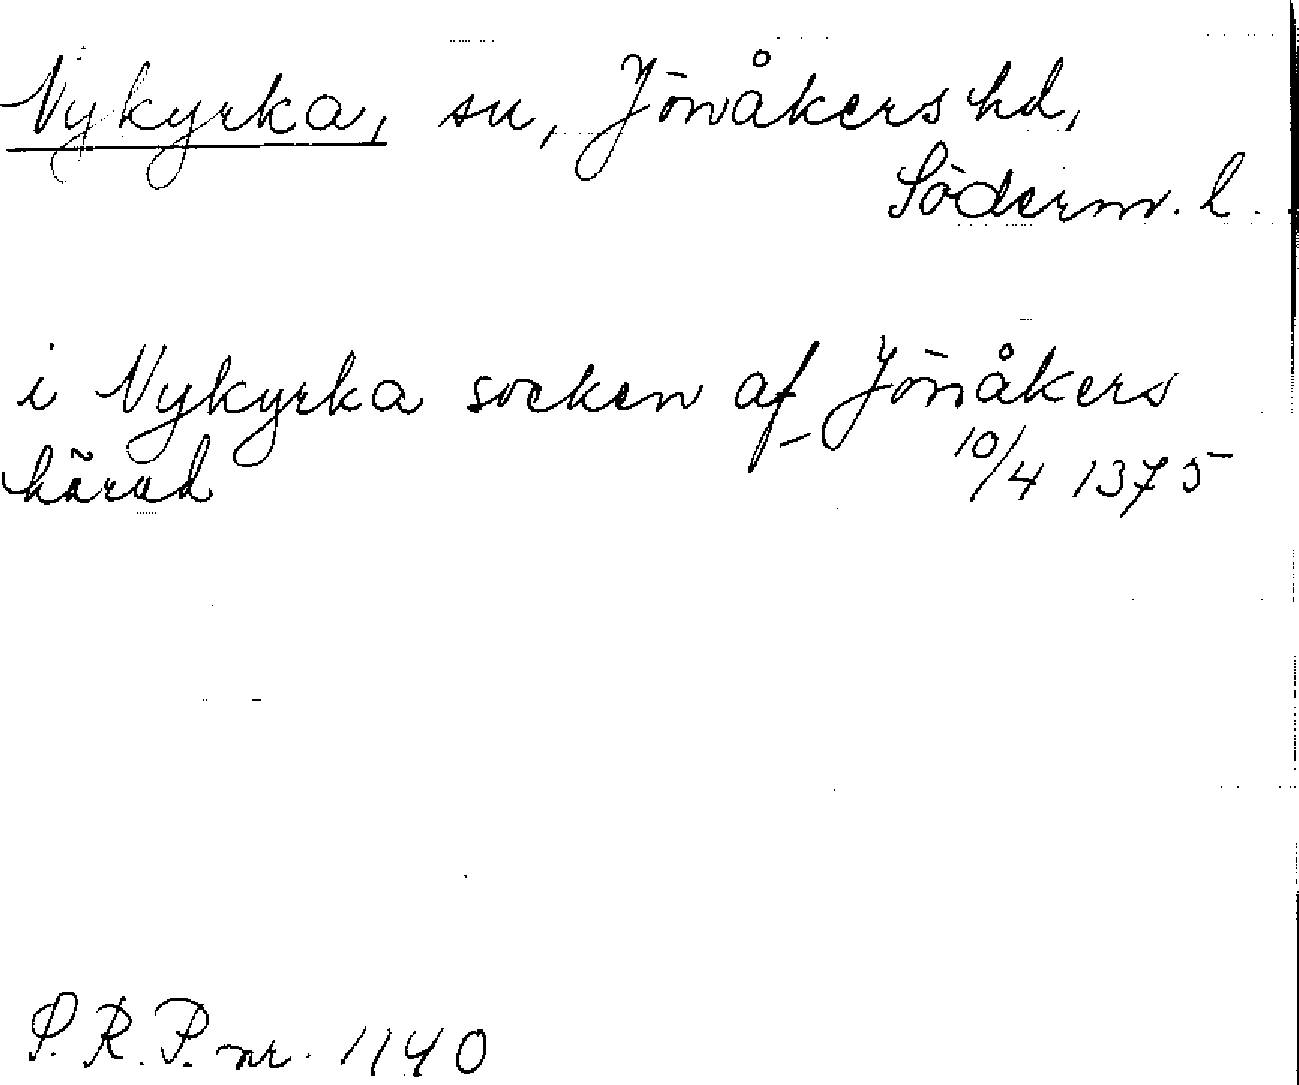 Nykyrka, sn, Jönåkers hd,
Söderm. l.
i Nykyrka socken af Jönåkers
härad 10/4 1375
S.R.P. nr. 1140